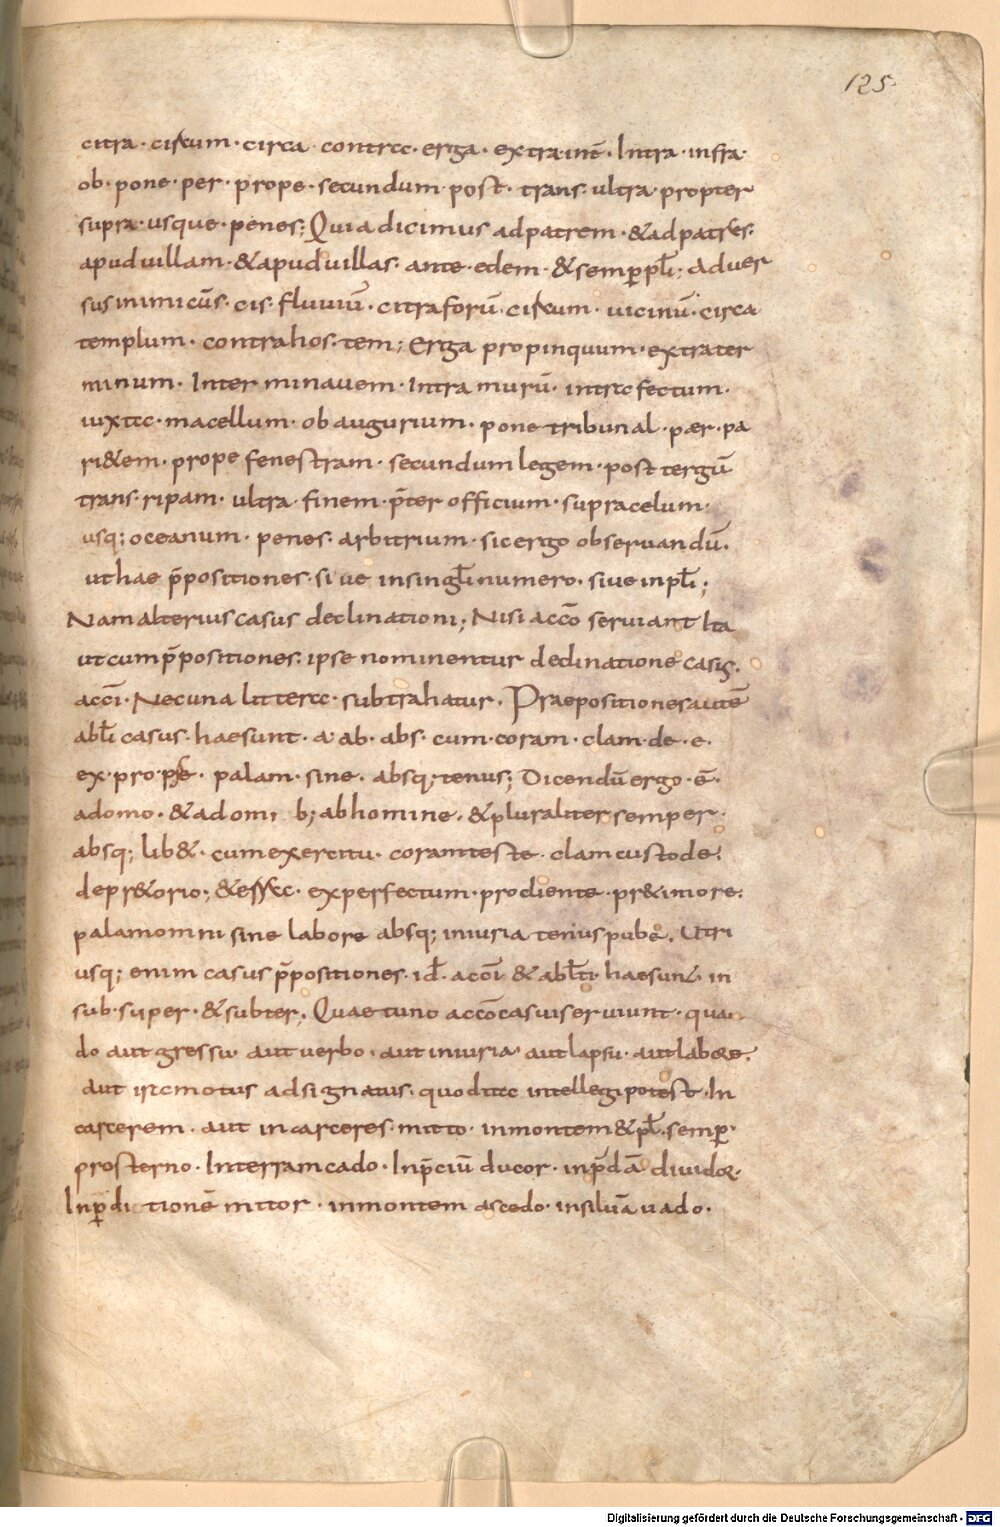 125
citra · circum · circa · contra · erga · extra · int̄ · Intra · infra ·
ob · pone · per · prope · secundum · post · trans · ultra · propter
supra · usque · penes; Quia dicimus ad patrem · & ad patres ·
apud uillam · & apud uillas · ante edem · & semper pl̄i; aduer
sus inimicūs · cis fluuiū · citra forū · circum · uicinū · circa
templum · contra hostem; Erga propinquum · extra ter
minum · Inter minauem · Intra murū · intra fectum ·
iuxta · macellum · ob augurium · pone tribunal · pær · pa
ri&em · prope fenestram · secundum legem · post tergū
trans ripam · ultra finem · p̄ter officium · supra celum ·
usq; oceanum · penes arbitrium · sic ergo obseruandū ·
ut hae p̄positiones · siue in singl̄i numero · siue in pl̄i;
Nam alterius casus declinationi; Nisi accō seruiant Ita
ut cum p̄positiones · ipse nominentur declinatione casis ·
accī · Nec una littera · subtrahatur · Praepositiones autē
abl̄i casus · hae sunt · a · ab · abs · cum · coram · clam · de · e ·
ex · pro · prę · palam · sine · absq; tenus; Dicendū ergo · ē ·
a domo · & a domi b; ab homine · & pluraliter semper ·
absq; lib& · cum exercitu · coram teste · clam custode ·
de pr&orio; & essca · ex perfectum · pro cliente · pr& imore ·
palam omni sine labore absq; iniuria tenus pube · Utri
usq; enim casus p̄positiones · id̄ · accī & abl̄ti · hae sunt · in
sub · super · & subter · Quae tunc accō casui seruiunt · quan
do aut gressu · aut uerbo · aut iniuria · aut lapsu · aut labore ·
aut ira motus adsignatus · quod ita intellegi potest · In
carcerem · aut in carceres · mitto · in montem & pl̄ · semper ·
prosterno · In terram cado · In p̄ciū ducor · in p̄dā diuidor ·
In perditionē mittor · in montem ascedo · in siluā uado ·
Digitalisierung gefördert durch die Deutsche Forschungsgemeinschaft - DFG